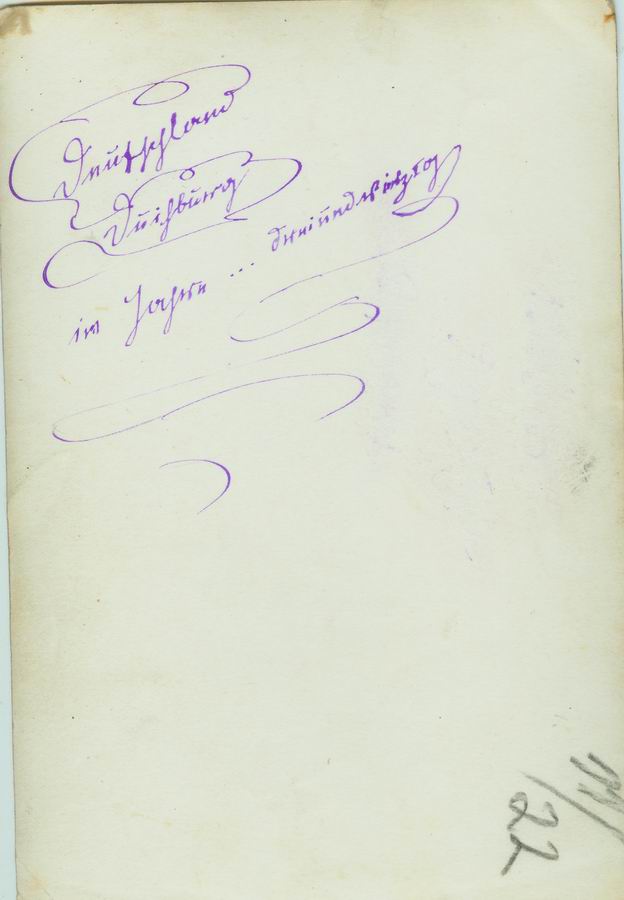 Deutschland
Duisburg
im Jahre ... dreiundvierzig